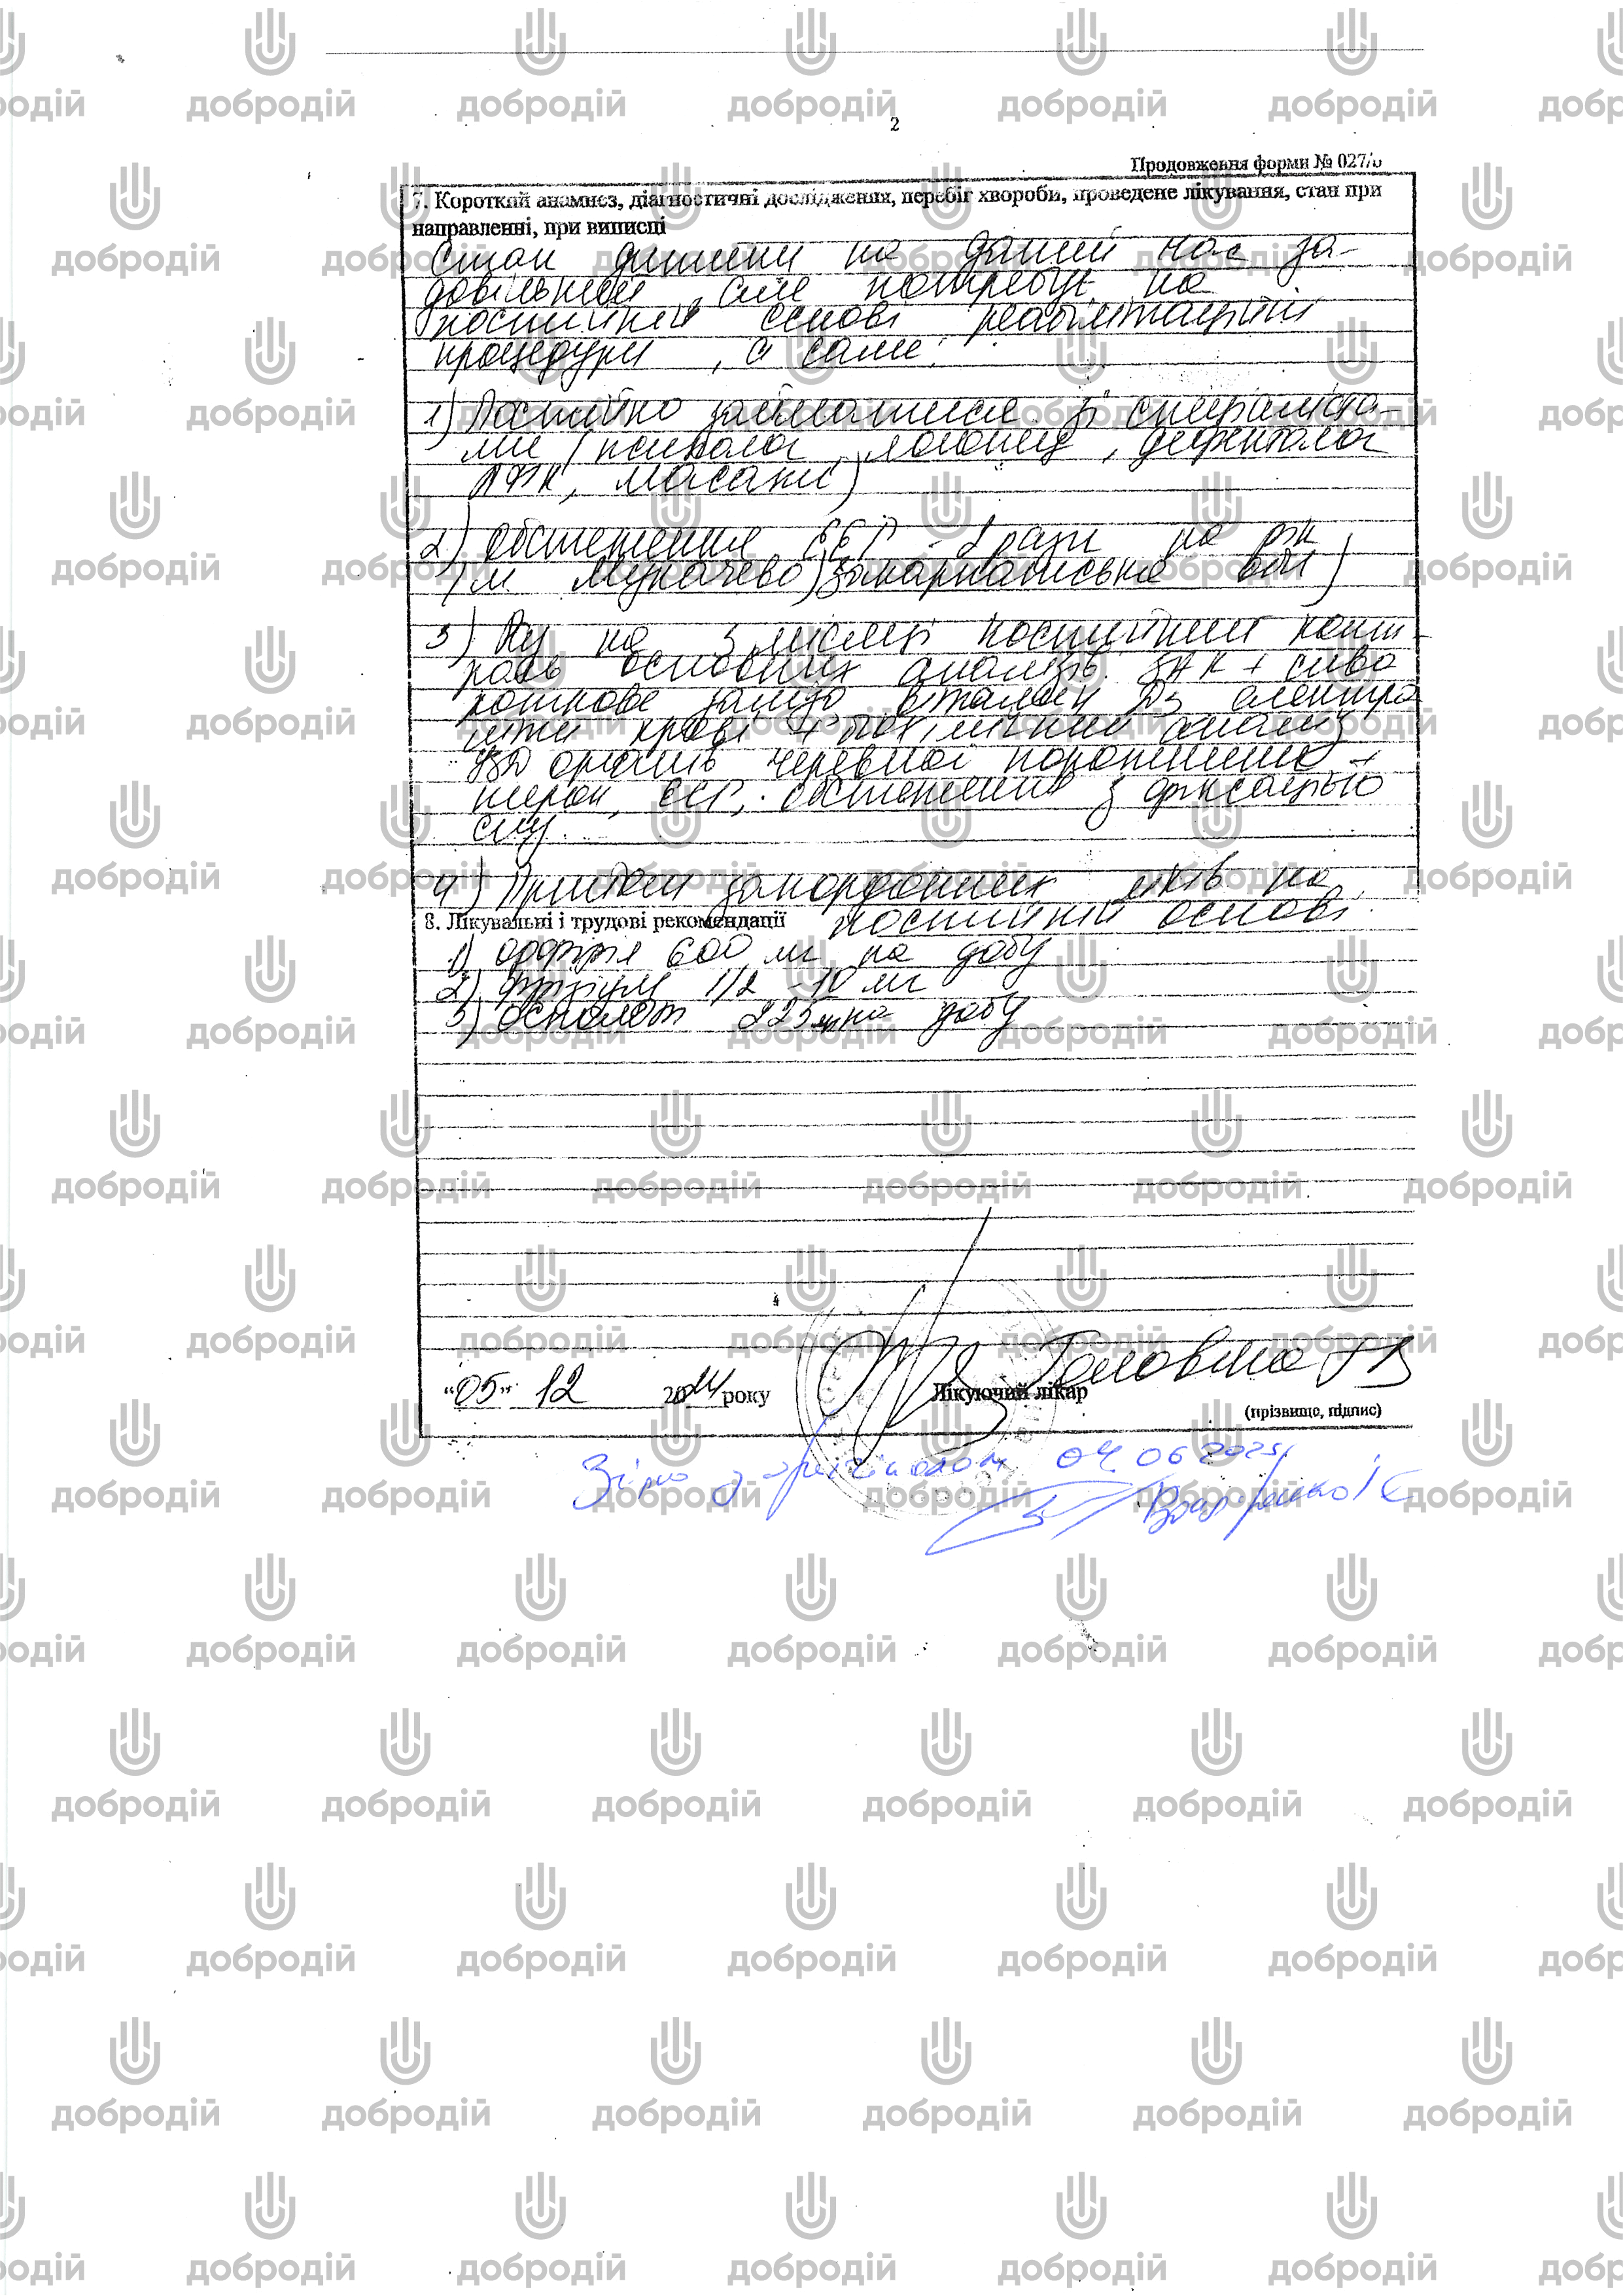 2
Продовження форми № 027/о
7. Короткий анамнез, діагностичні дослідження, перебіг хвороби, проведене лікування, стан при
направленні, при виписці
Стан дитини на даний час за-
довільний, але потребує на
постійній основі реабілітаційні
процедури, а саме:
1) Постійно займатися зі спеціаліста-
ми (психолог, логопед, дефектолог
ЛФК, масажі)
2) Обстеження ЕЕГ - 2 рази на рік
(м. Мукачево) Закарпатська обл)
3) на 3 місяці постійний конт-
роль основних аналізів ЗАК + сиво
роткове залізо вітамін Д3 електро
літи крові + біохімічний аналіз
УЗД органів черевної порожнини +
нирок, ЕЕГ, обстеження з фіксацією
сну.
4) Прийом закордонних ліків на
8. Лікувальні і трудові рекомендації постійній основі.
1) 600 мг на добу
2) 1/2 - 10 мг
3) Осполот 225 мг на добу
“05” 12 2024 року Лікуючий лікар
(прізвище, підпис)
Згідно з оригіналом 04.06.2025
добродій